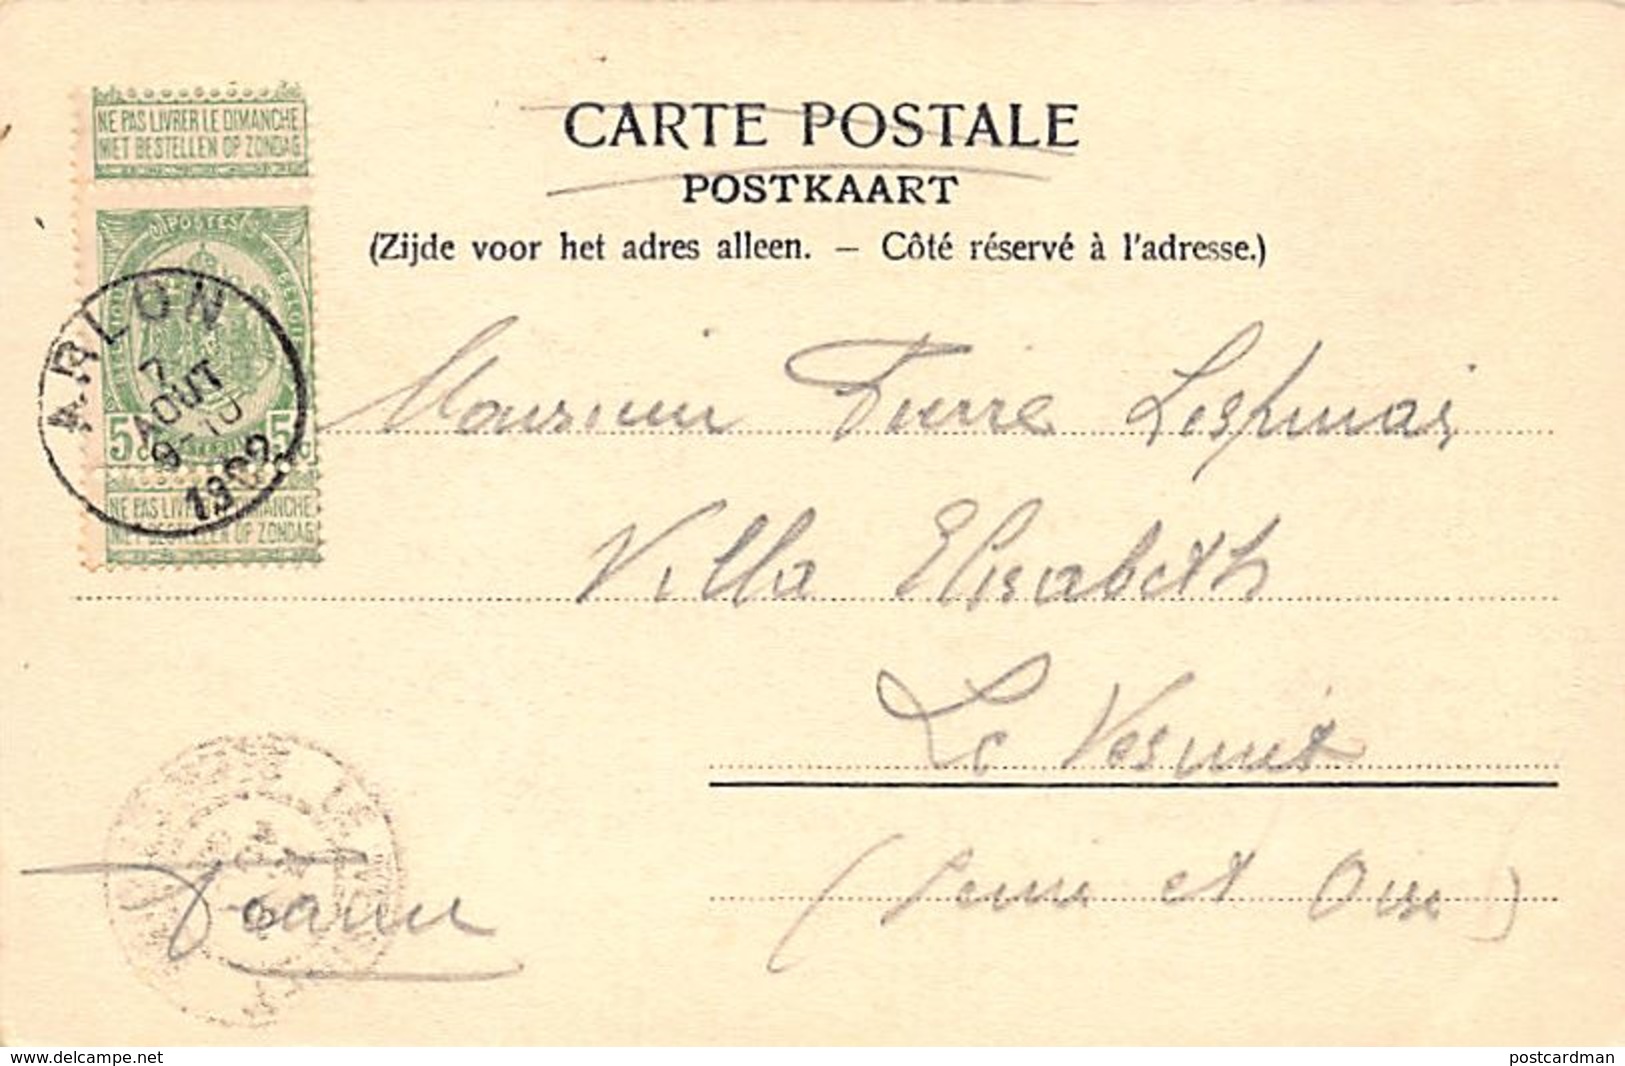 CARTE POSTALE
POSTKAART
(Zijde voor het adres alleen. – Côté réservé à l'adresse.)
NE PAS LIVRER LE DIMANCHE
NIET BESTELLEN OP ZONDAG
POSTES
5 c 5 c
NE PAS LIVRER LE DIMANCHE
NIET BESTELLEN OP ZONDAG
ARLON
7
AOUT
9-10
1902
Monsieur Pierre
Villa Elisabeth
Le Vesinet
(Seine et Oise)
France
www.delcampe.net
postcardman